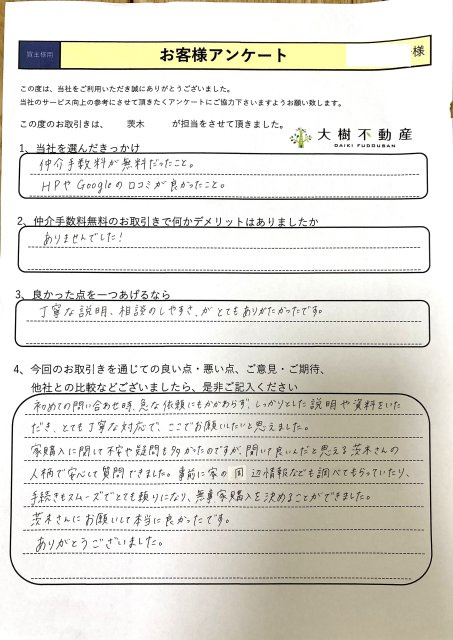 買主様用
お客様アンケート
様
この度は、当社をご利用いただき誠にありがとうございました。
当社のサービス向上の参考にさせて頂きたくアンケートにご協力下さいますようお願い致します。
この度のお取引きは、 茨木 が担当をさせて頂きました。
大樹不動産
DAIKI FUDOUSAN
1、当社を選んだきっかけ
仲介手数料が無料だったこと。
HPやGoogleの口コミが良かったこと。
2、仲介手数料無料のお取引きで何かデメリットはありましたか
ありませんでした!
3、良かった点を一つあげるなら
丁寧な説明、相談のしやすさ、がとてもありがたかったです。
4、今回のお取引きを通じての良い点・悪い点、ご意見・ご期待、
他社との比較などございましたら、是非ご記入ください
初めての問い合わせ時、急な依頼にもかかわらず、しっかりとした説明や資料をいた
だき、とても丁寧な対応で、ここでお願いしたいと思えました。
家購入に関して不安や疑問も多かったのですが、聞いて良いんだと思える茨木さんの
人柄で安心して質問できました。事前に家の周辺情報なども調べてもらっていたり、
手続きもスムーズでとても頼りになり、無事家購入を決めることができました。
茨木さんにお願いして本当に良かったです。
ありがとうございました。